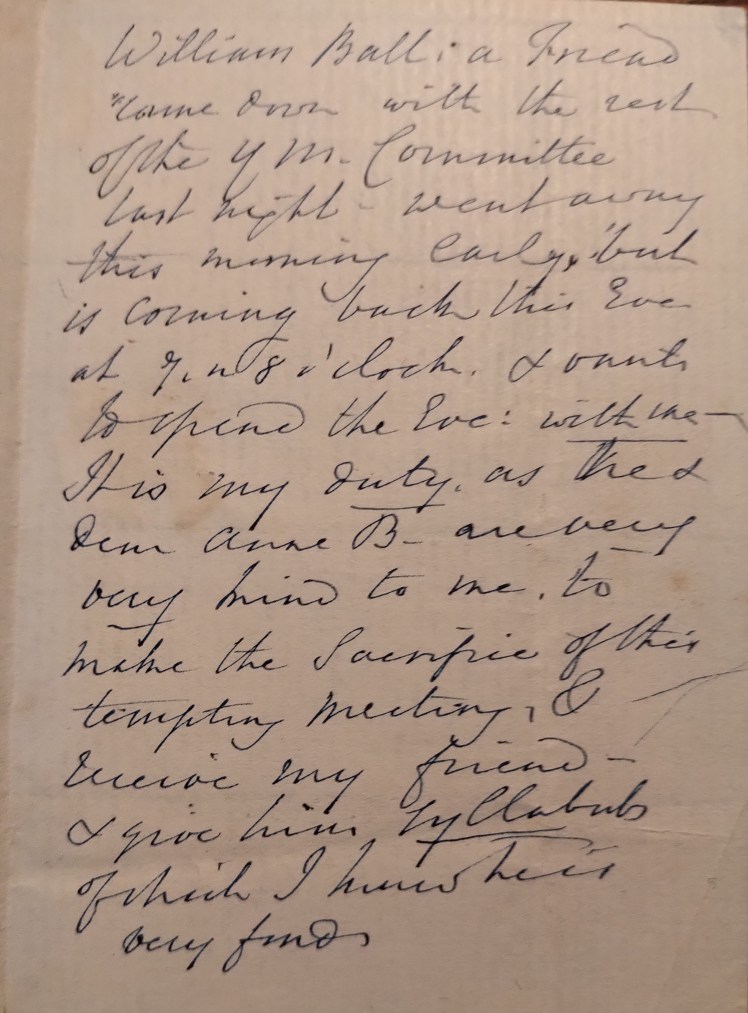 William Ball: a Friend
came down with the rest
of the Y M. Committee
last night - went away
this morning early, but
is coming back this Eve
at 7, or 8 o'clock. & wants
to spend the Eve: with me -
It is my duty, as he &
Dear Anne B - are very
very kind to me, to
make the Sacrifice of this
tempting meeting, &
receive my friend -
& give him syllabubs
of which I know he is
very fond